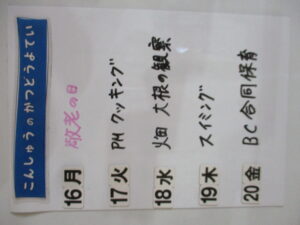 こんしゅうのかつどうよてい
16 月 敬老の日
17 火 PM クッキング
18 水 畑 大根の観察
19 木 スイミング
20 金 BC合同保育